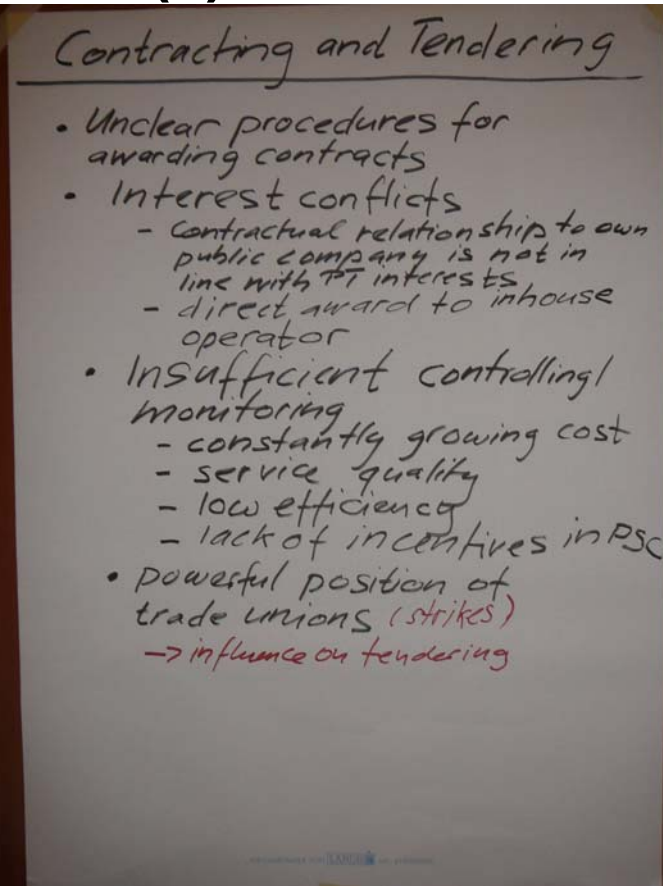 Contracting and Tendering
• Unclear procedures for
awarding contracts
• Interest conflicts
- contractual relationship to own
public company is not in
line with PT interests
- direct award to inhouse
operator
• Insufficient controlling/
monitoring
- constantly growing cost
- service quality
- low efficiency
- lack of incentives in PSC
• powerful position of
trade unions (strikes)
-> influence on tendering